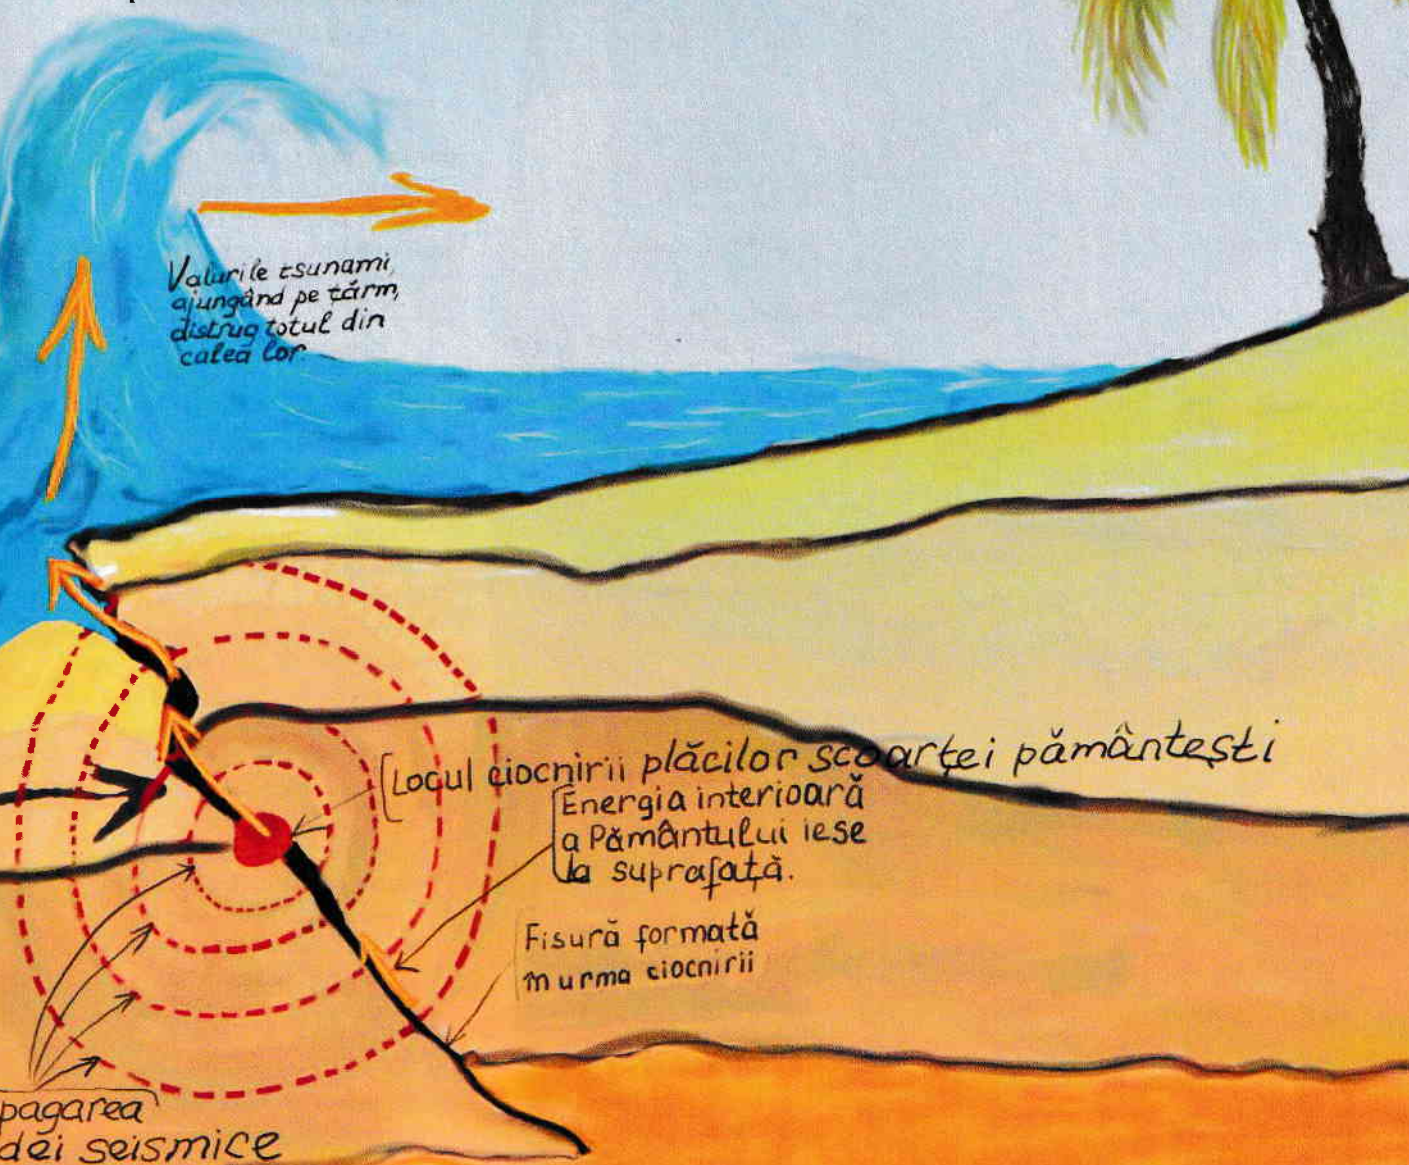 Valurile tsunami,
ajungând pe țărm,
distrug totul din
calea lor
Locul ciocnirii plăcilor scoarței pământești
Energia interioară
a Pământului iese
la suprafață.
Fisură formată
în urma ciocnirii
pagarea
dei seismice